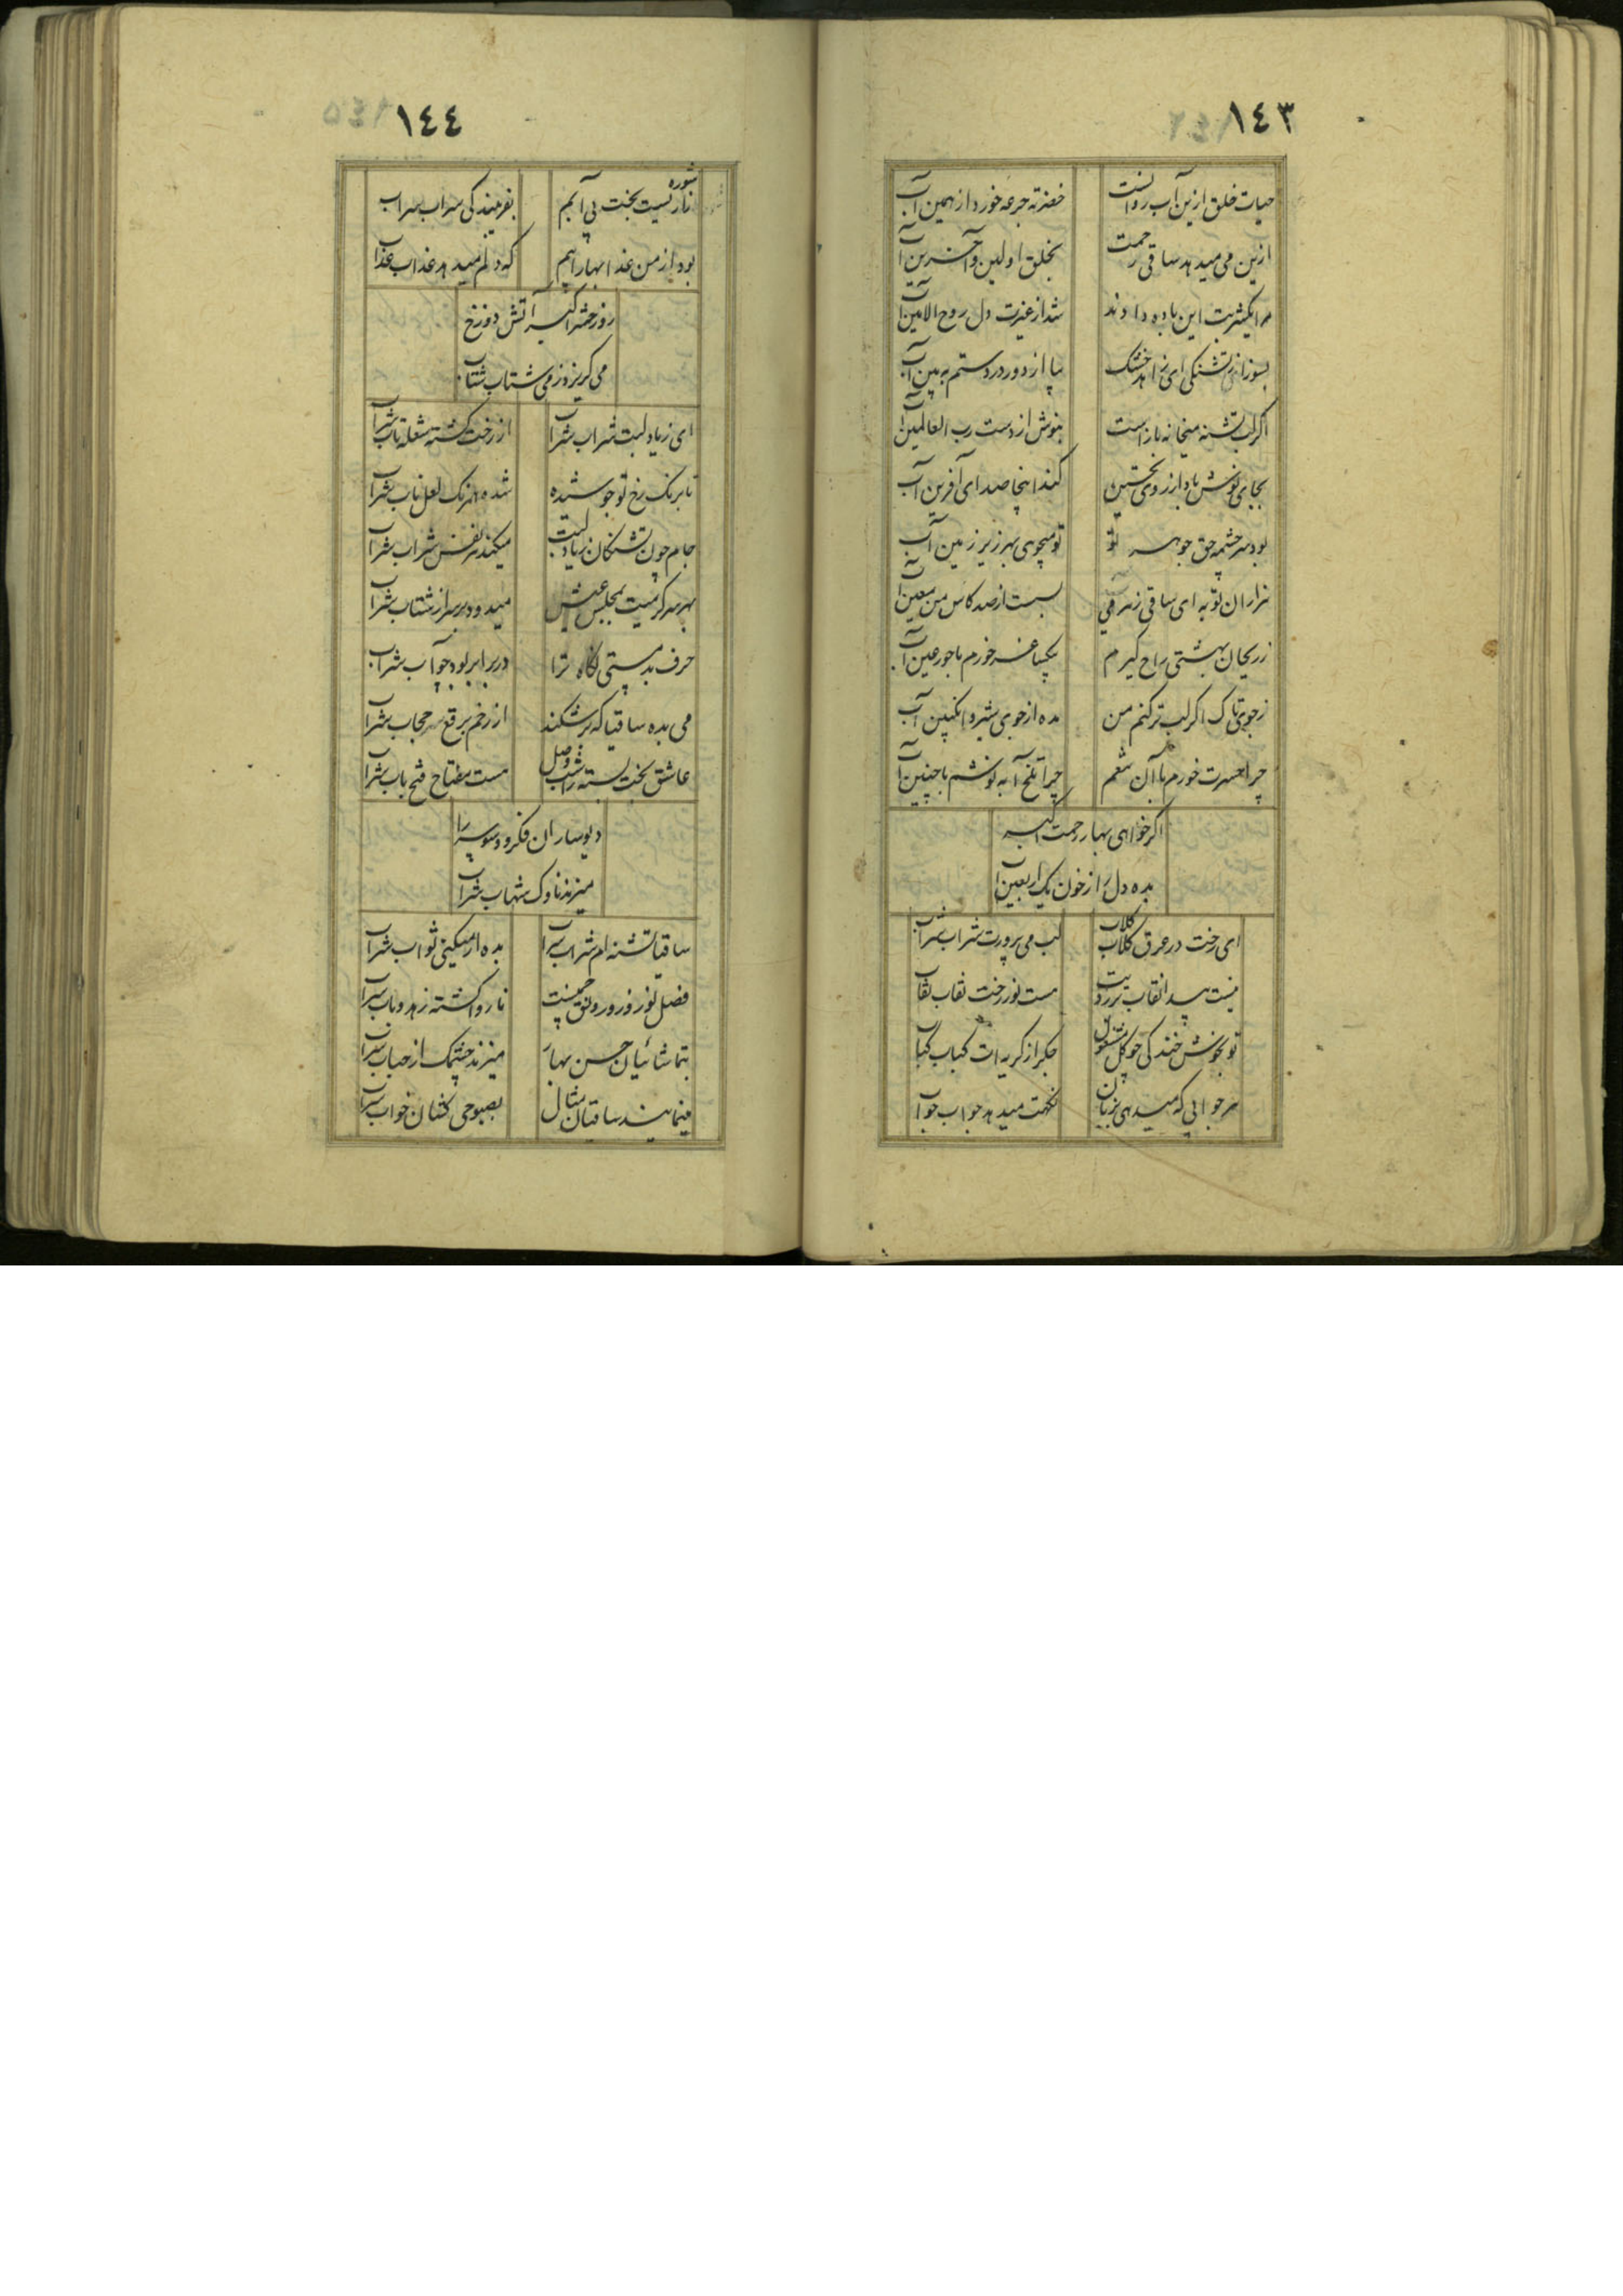 ١٤٣
حیات خلق ازین آب روانست
خضر ته جرعه خورد از همین آب
ازین می میدهد ساقی رحمت
بخلق اولین و آخرین آب
مرا یکشربت این باده دادند
شد از غیرت دل روح الامین آب
بسوز از تشنگی ای زاهد خشک
بیا از دور در دستم ببین آب
اگر لب تشنه میخانه باز است
بنوش از دست رب العالمین آب
بجای نوش باد از روی تحسین
کند اینجا صدای آفرین آب
بود سرچشمه حق جوهر تو
تو میجوی بهر زیر زمین آب
هزاران توبه ای ساقی ز هر می
بسست از صد کاس من معین آب
ز ریحان بهشتی راح گیرم
بیکساغر خورم با حور عین آب
ز جوی تاک اگر لب تر کنم من
مده از جوی شیر و انگبین آب
چرا حسرت خورم با آن تنعم
چرا تلخ آبه نوشم با چنین آب
اگر خواهی بهار رحمت اکبر
بده دل را ز خون یک اربعین آب
ای رخت در عرق گلاب گلاب
لب می پرورت شراب شراب
نیست پیدا نقاب بر رویت
هست نور رخت نقاب نقاب
تو بخوش خندگی چو گل مشغول
جگر از گریه ات کباب کباب
هر جوابی که میدهی بزبان
نگهت میدهد جواب جواب
١٤٤
شوره زار نیست بخت بی آبم
بفریبندگی سراب سراب
بود از من عذابها را بیم
که دلم میدهد عذاب عذاب
روز حشر اکبر آتش دوزخ
می گریزد ز می شتاب شتاب
ای ز یاد لبت شراب شراب
از رخت گشته شعله تاب شراب
تا برنگ رخ تو جوشیده
شده همرنگ لعل ناب شراب
جام چون تشنگان بیاد لبت
میکند هر نفس شراب شراب
بهر سرگرمیت بمجلس عیش
میدود بر سر از شتاب شراب
حرف بدمستی نگاه ترا
در برابر بود جواب شراب
می بده ساقیا که بر شکند
از رخم برقع حجاب شراب
عاشق بخت بسته را شب وصل
هست مفتاح فتح باب شراب
دیوساران فکر و وسوسه را
میزند ناوک شهاب شراب
ساقیا تشنه ام شراب شراب
بده ار میکنی ثواب شراب
فصل نوروز و رونق چمنست
ناروا گشته زهد و باب شراب
بتماشائیان حسن بهار
میزند چشمک از حباب شراب
مینمایند ساقیان مثال
بصبوحی کشان خواب شراب